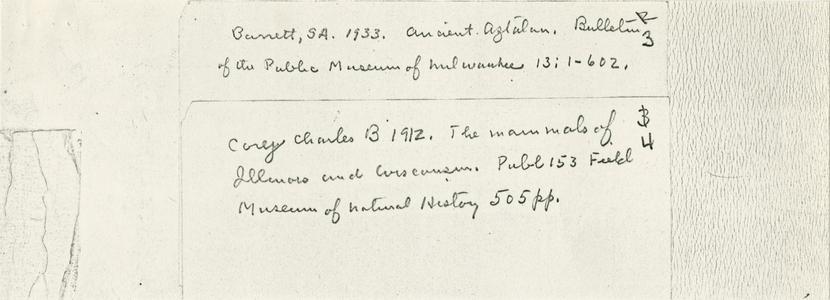 Barrett, S.A. 1933. Ancient Aztalan. Bulletin
3
of the Public Museum of Milwaukee 13: 1-602.
Cory Charles B 1912. The mammals of
4
Illinois and Wisconsin. Publ 153 Field
Museum of Natural History 505pp.